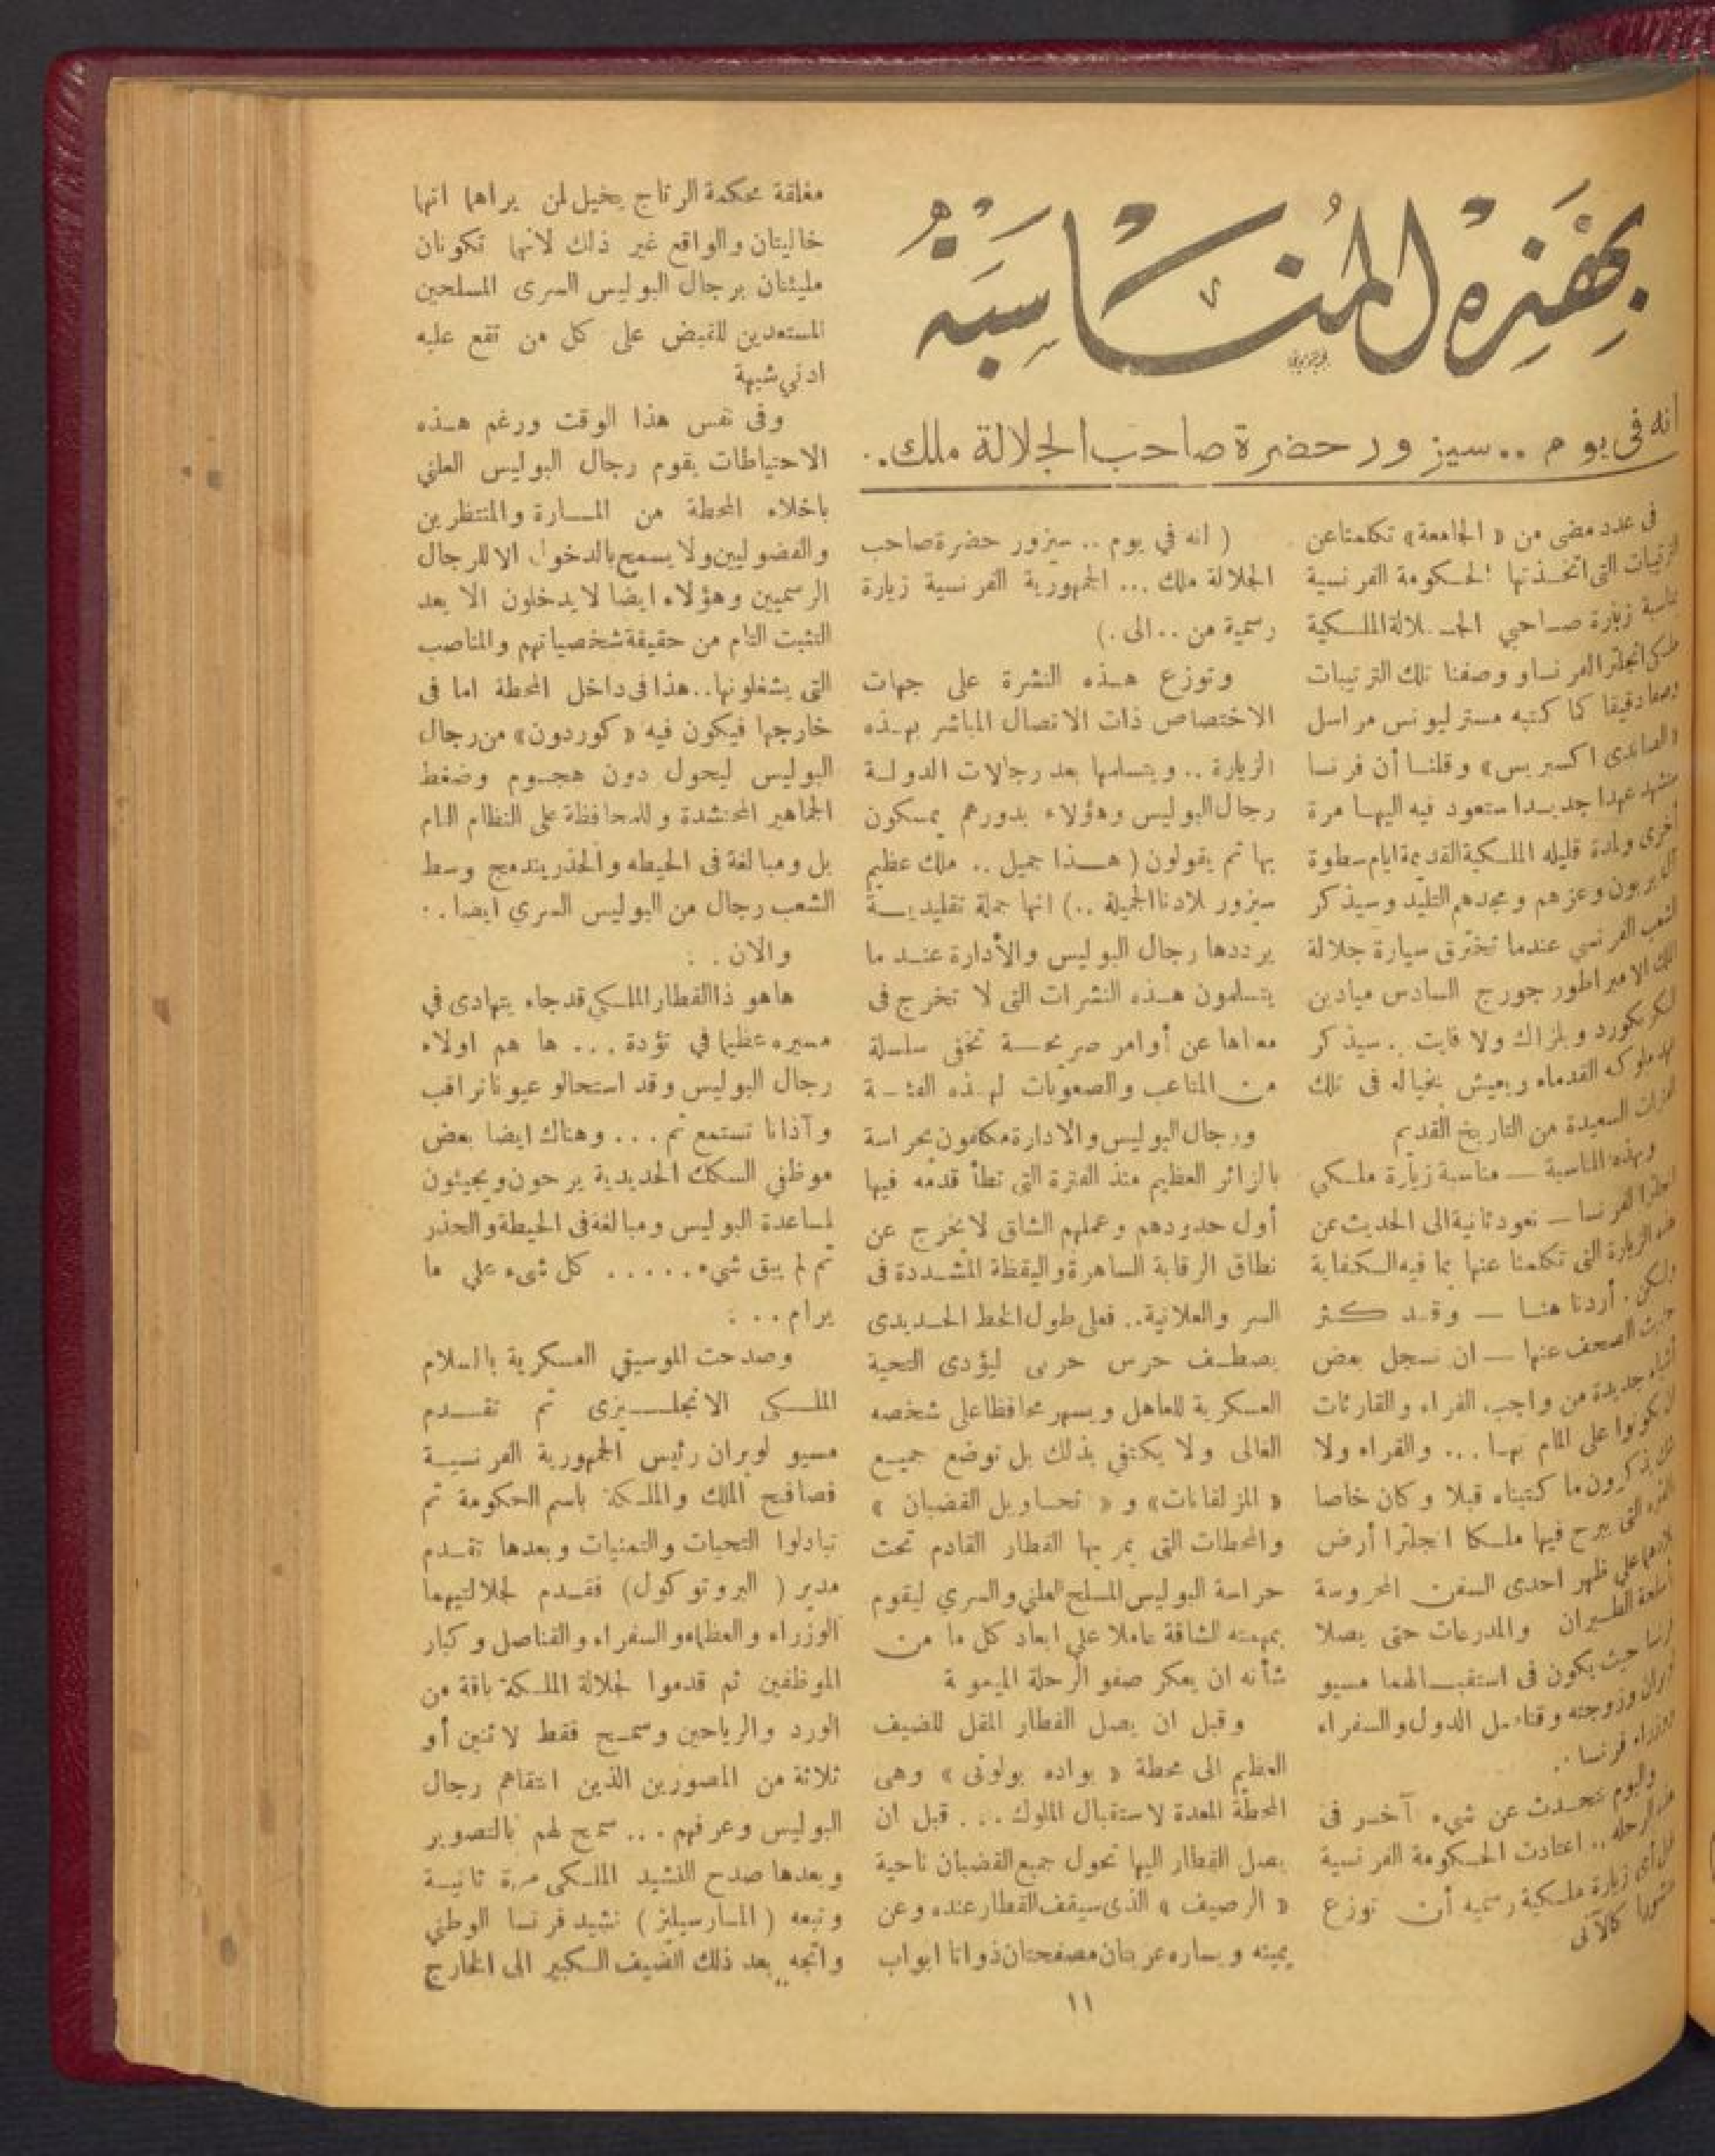 بهذه المناسبة
انه في يوم .. سيزور حضرة صاحب الجلالة ملك ..
فى عدد مضى من « الجامعة » تكلمنا عن
الترتيبات التى اتخذتها الحكومة الفرنسية
زيارة صاحبي الجلالة الملكية
انجلترا لفرنسا ووصفنا تلك الترتيبات
وصفا دقيقا كما كتبه مستر ليونس مراسل
« الصاندى اكسبريس » وقلنا أن فرنسا
ستشهد عهدا جديدا ستعود فيه اليها مرة
أخرى ولمدة قليله الملكية القديمة ايام سطوة
آل بربون وعزهم ومجدهم التليد وسيذكر
الشعب الفرنسي عندما تخترق سيارة جلالة
الملك الامبراطور جورج السادس ميادين
وبلزاك ولا فايت .. سيذكر
ملوكه القدماء ويعيش بخياله فى تلك
السعيدة من التاريخ القديم
وبهذه المناسبة — مناسبة زيارة ملكي
انجلترا لفرنسا — نعود ثانية الى الحديث عن
هذه الزيارة التى تكلمنا عنها بما فيه الكفاية
ولكن . أردنا هنا — وقد كثر
حديث الصحف عنها — ان نسجل بعض
أشياء جديدة من واجب القراء والقارئات
ليكونوا على المام بها ... والقراء ولا
شك يذكرون ما كتبناه قبلا وكان خاصا
التى يبرح فيها ملكا انجلترا أرض
بلادهما على ظهر احدى السفن المحروسة
الطيران والمدرعات حتى يصلا
فرنسا حيث يكون فى استقبالهما مسيو
لوبران وزوجته وقناصل الدول والسفراء
ووزراء فرنسا ..
واليوم نتحدث عن شيء آخر فى
هذه الرحله .. اعتادت الحكومة الفرنسية
قبل أى زيارة ملكية رسميه أن توزع
منشورا كالآتى
( انه في يوم .. سيزور حضرة صاحب
الجلالة ملك ... الجمهورية الفرنسية زيارة
رسمية من .. الى .)
وتوزع هذه النشرة على جهات
الاختصاص ذات الاتصال المباشر بهذه
الزيارة .. ويتسلمها بعد رجالات الدولة
رجال البوليس وهؤلاء بدورهم يمسكون
بها ثم يقولون ( هذا جميل .. ملك عظيم
سيزور لادنا الجميلة ..) انها جملة تقليدية
يرددها رجال البوليس والأدارة عند ما
يتسلمون هذه النشرات التى لا تخرج فى
معناها عن أوامر صريحة تخفى سلسلة
من المتاعب والصعوبات لهذه الفئة
ورجال البوليس والادارة مكلفون بحراسة
بالزائر العظيم منذ الفترة التى تطأ قدمه فيها
أول حدودهم وعملهم الشاق لا يخرج عن
نطاق الرقابة الساهرة واليقظة المشددة فى
السر والعلانية .. فعلى طول الخط الحديدى
يصطف حرس حربى ليؤدى التحية
العسكرية للعاهل ويسهر محافظا على شخصه
الغالى ولا يكتفي بذلك بل توضع جميع
« المزلقانات » و « تحاويل القضبان »
والمحطات التى يمر بها القطار القادم تحت
حراسة البوليس المسلح العلني والسري ليقوم
بمهمته الشاقة عاملا على ابعاد كل ما من
شأنه ان يعكر صفو الرحلة الميمو ة
وقبل ان يصل القطار المقل للضيف
العظيم الى محطة « بواده بولونى » وهى
المحطة المعدة لاستقبال الملوك ... قبل ان
يصل القطار اليها تحول جميع القضبان ناحية
« الرصيف » الذى سيقف القطار عنده وعن
يمينه ويساره عربتان مصفحتان ذواتا ابواب
مغلقة محكمة الرتاج يخيل لمن يراهما انهما
خاليتان والواقع غير ذلك لانهما تكونان
مليئتان برجال البوليس السرى المسلحين
المستعدين للقبض على كل من تقع عليه
ادني شبهة
وفى نفس هذا الوقت ورغم هذه
الاحتياطات يقوم رجال البوليس العلني
باخلاء المحطة من المارة والمنتظرين
والفضوليين ولا يسمح بالدخول الا للرجال
الرسميين وهؤلاء ايضا لا يدخلون الا بعد
التثبت التام من حقيقة شخصياتهم والمناصب
التى يشغلونها .. هذا فى داخل المحطة اما فى
خارجها فيكون فيه « كوردون » من رجال
البوليس ليحول دون هجوم وضغط
الجماهير المحتشدة وللمحافظة على النظام التام
بل ومبالغة فى الحيطه والحذر يندمج وسط
الشعب رجال من البوليس السري ايضا ..
والان . :
هاهو ذا القطار الملكي قد جاء يتهادى في
مسيره عظيما في تؤدة ... ها هم اولاء
رجال البوليس وقد استحالو عيونا تراقب
وآذانا تستمع ثم ... وهناك ايضا بعض
موظفي السكك الحديدية يرحون ويجيئون
لمساعدة البوليس ومبالغة فى الحيطة والحذر
ثم لم يبق شيء ..... كل شىء على ما
يرام ... :
وصدحت الموسيقي العسكرية بالسلام
الملكى الانجليزى ثم تقدم
مسيو لوبران رئيس الجمهورية الفرنسية
فصافح الملك والملكة باسم الحكومة ثم
تبادلوا التحيات والتمنيات وبعدها تقدم
مدير ( البروتوكول ) فقدم لجلالتيهما
الوزراء والعظماء والسفراء والقناصل وكبار
الموظفين ثم قدموا لجلالة الملكة باقة من
الورد والرياحين وسمح فقط لاثنين أو
ثلاثة من المصورين الذين انتقاهم رجال
البوليس وعرفهم ... سمح لهم بالتصوير
وبعدها صدح النشيد الملكى مرة ثانية
وتبعه ( المارسيليز ) نشيد فرنسا الوطني
واتجه بعد ذلك الضيف الكبير الى الخارج
١١